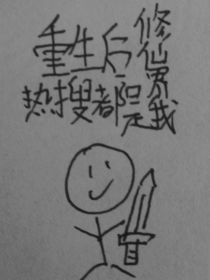 重生后修仙界
热搜都是我